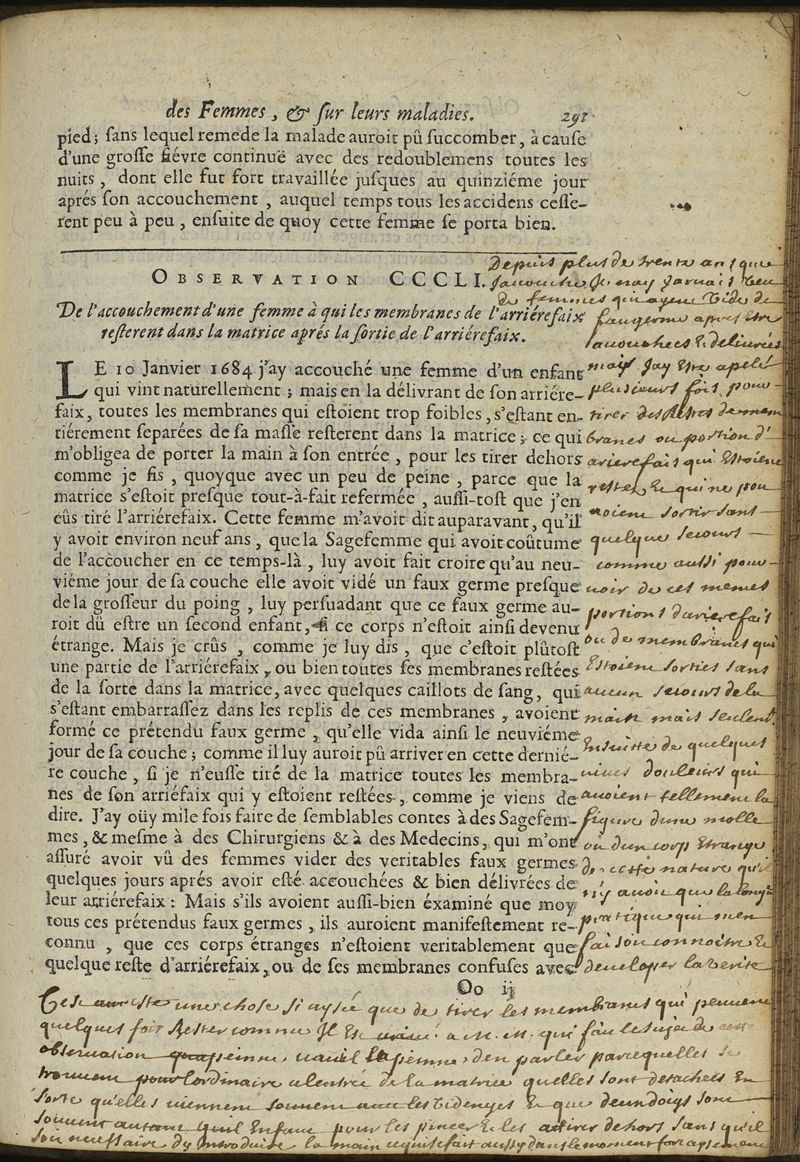 des Femmes, & sur leurs maladies. 291
pied; sans lequel remede la malade auroit pû succomber, à cause
d'une grosse fiévre continuë avec des redoublemens toutes les
nuits, dont elle fut fort travaillée jusques au quinziéme jour
aprés son accouchement, auquel temps tous les accidens cesse-
rent peu à peu, ensuite de quoy cette femme se porta bien.
OBSERVATION CCCLI.
De l'accouchement d'une femme à qui les membranes de l'arriérefaix
resterent dans la matrice aprés la sortie de l'arriérefaix.
LE 10 Janvier 1684 j'ay accouché une femme d'un enfant
qui vint naturellement; mais en la délivrant de son arriére-
faix, toutes les membranes qui estoient trop foibles, s'estant en-
tiérement separées de sa masse resterent dans la matrice; ce qui
m'obligea de porter la main à son entrée, pour les tirer dehors
comme je fis, quoyque avec un peu de peine, parce que la
matrice s'estoit presque tout-à-fait refermée, aussi-tost que j'en
eûs tiré l'arriérefaix. Cette femme m'avoit dit auparavant, qu'il
y avoit environ neuf ans, que la Sagefemme qui avoit coûtume
de l'accoucher en ce temps-là, luy avoit fait croire qu'au neu-
viéme jour de sa couche elle avoit vidé un faux germe presque
de la grosseur du poing, luy persuadant que ce faux germe au-
roit dû estre un second enfant, si ce corps n'estoit ainsi devenu
étrange. Mais je crûs, comme je luy dis, que c'estoit plûtost
une partie de l'arriérefaix, ou bien toutes ses membranes restées
de la sorte dans la matrice, avec quelques caillots de sang, qui
s'estant embarrassez dans les replis de ces membranes, avoient
formé ce prétendu faux germe, qu'elle vida ainsi le neuviéme
jour de sa couche; comme il luy auroit pû arriver en cette dernié-
re couche, si je n'eusse tiré de la matrice toutes les membra-
nes de son arriéfaix qui y estoient restées, comme je viens de
dire. J'ay oüy mile fois faire de semblables contes à des Sagefem-
mes, & mesme à des Chirurgiens & à des Medecins, qui m'ont
assuré avoir vû des femmes vider des veritables faux germes
quelques jours aprés avoir esté accouchées & bien délivrées de
leur arriérefaix: Mais s'ils avoient aussi-bien éxaminé que moy
tous ces prétendus faux germes, ils auroient manifestement re-
connu, que ces corps étranges n'estoient veritablement que
quelque reste d'arriérefaix, ou de ses membranes confuses avec
Oo ij
Depuis plus de trente ans que
jacouche Je nay jamais veu
de femmes qui ayent vide de
faugerme apres estre
acouchees & delivrées
mais Jay Este apelé
plusieurs fois pour
tirer des Restes de mem
branes ou portion d'
arierefais qui Estoient
restes & qui ne pou
voient sortir sans
quelque secours
comme aussi pour
voir de ces memes
portions darierefais
ou de membranes qui
Estoient sorties sans
aucun secours de la
main mais seulemt
Ensuitte de quelques
vives douleurs qui
avoient tellement la
figure dune molle
ou dun corp Etrange
de cette nature qu'il
n'y avoit que la longue
pratique qui men
fai son connoitre &
developer la verité
une chose si aysée que de tirer les membranes qui peuvent
quelques fois Rester comme Il Est a M. M. qui fait le sujet de cette
observation den parler parcequelles se
trouvent pour lordinaire a lentrée de la matrice quelles sont detachées En
sorte qu'elles viennent souvent & que deux doigs sont
souvent autant quil Enfaut pour les pincer & les atirer dehors sans qu'il
soit necessaire dy introduire la main